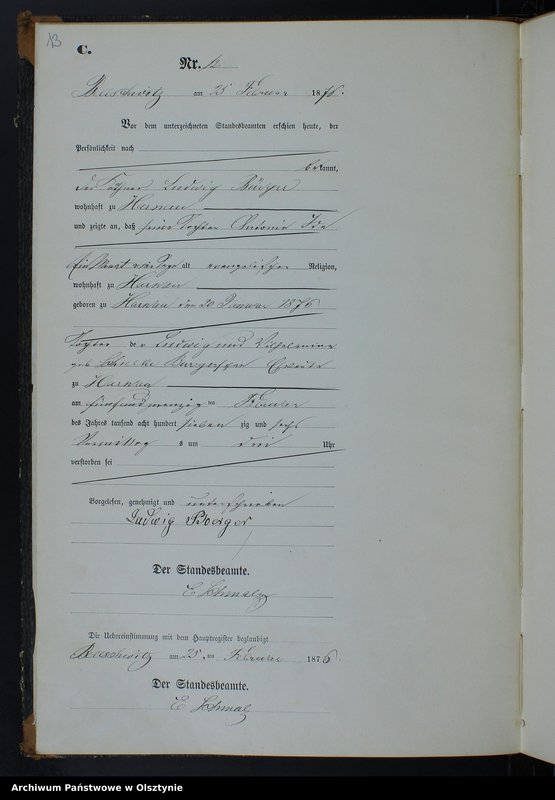 13
C.
Nr. 12
am 25 Februar 1876.
Vor dem unterzeichneten Standesbeamten erschien heute, der
Persönlichkeit nach
bekannt,
der Ludwig Bürger
wohnhaft zu Harnau
und zeigte an, daß seine Tochter Antonie Ida
Ein Monat alt evangelischer Religion,
wohnhaft zu Harnau
geboren zu Harnau den 20 Januar 1876
Tochter der Ludwig und Wilhelmine
geb Eheleute
zu Harnau
am fünfundzwanzig ten Februar
des Jahres tausend acht hundert sieben zig und sechs
Vormittag s um drei Uhr
verstorben sei
Vorgelesen, genehmigt und unterschrieben
Ludwig Boerger
Der Standesbeamte.
E Schmalz
Die Uebereinstimmung mit dem Hauptregister beglaubigt
am 25 ten Februar 1876.
Der Standesbeamte.
E Schmalz
Archiwum Państwowe w Olsztynie